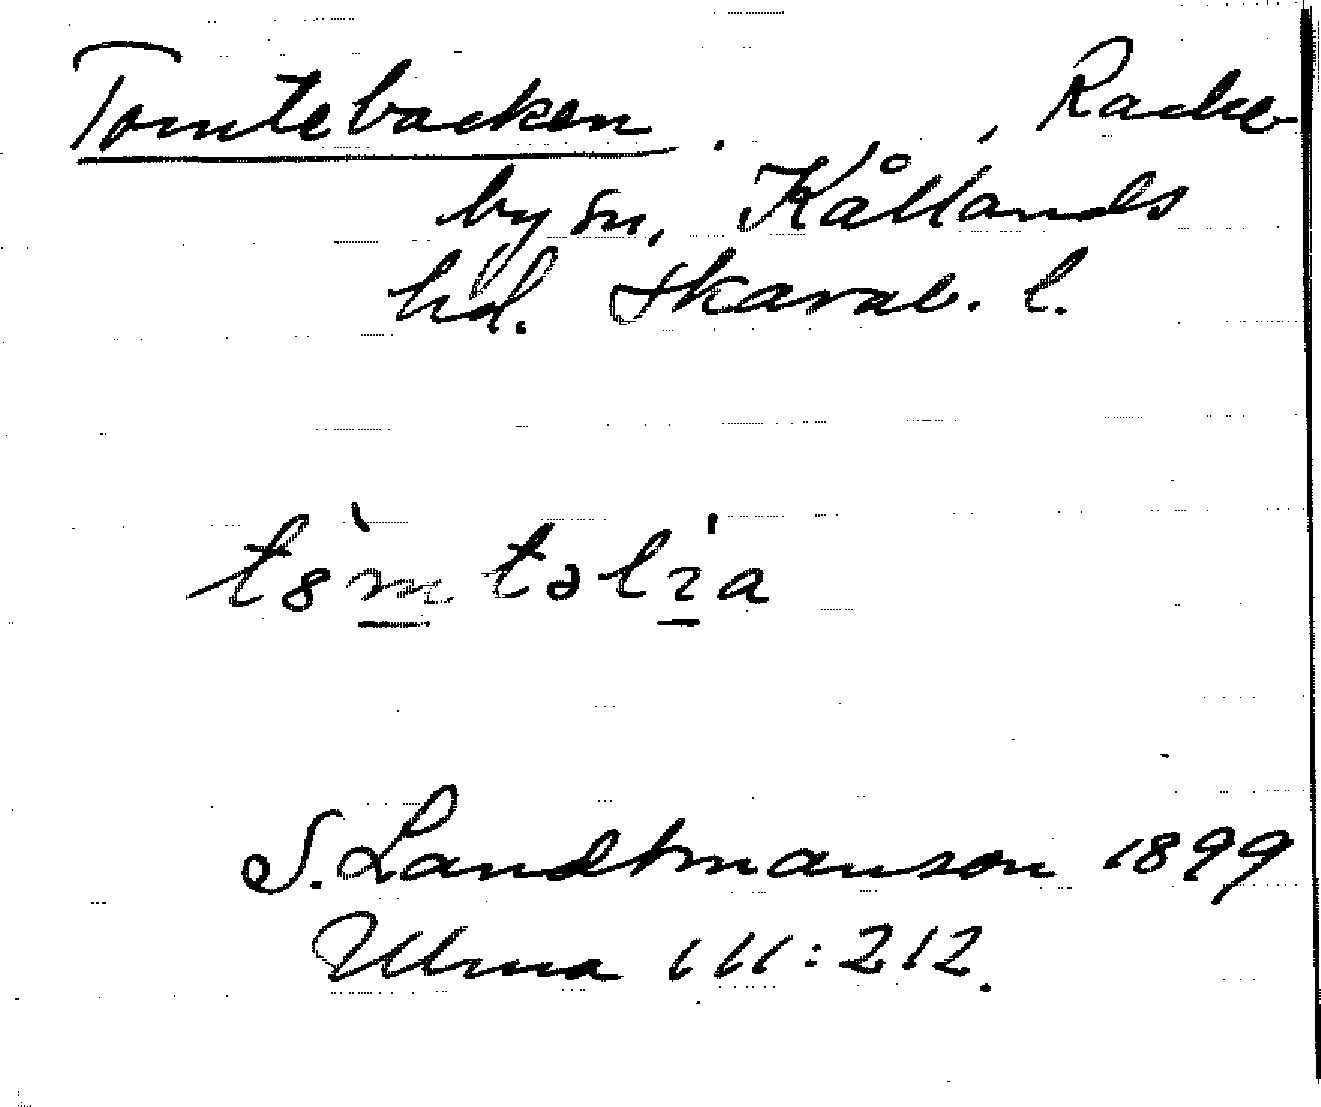 Tomtebacken . , Racke-
by sn, Kållands
hd. Skarab. l.
S. Landtmanson 1899
Ulma 111:212.